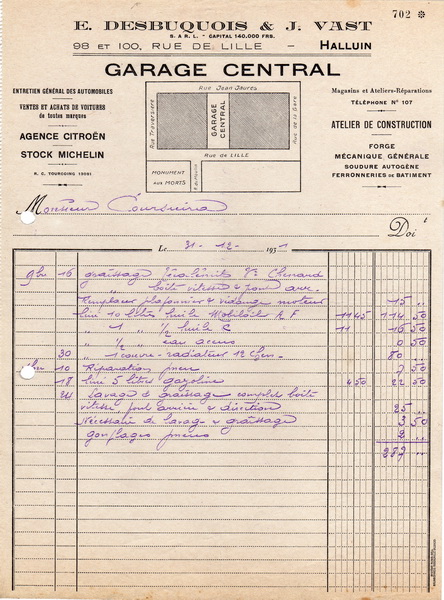 702
E. DESBUQUOIS & J. VAST
S. A R L. - CAPITAL 140.000 FRS.
98 ET 100, RUE DE LILLE - HALLUIN
GARAGE CENTRAL
ENTRETIEN GÉNÉRAL DES AUTOMOBILES
VENTES ET ACHATS DE VOITURES
de toutes marques
AGENCE CITROËN
STOCK MICHELIN
R. C. TOURCOING
Rue Jean Jaures
Rue Traversière
GARAGE CENTRAL
Rue de la Gare
Rue de LILLE
MONUMENT
AUX MORTS
Magasins et Ateliers-Réparations
TÉLÉPHONE N° 107
ATELIER DE CONSTRUCTION
FORGE
MÉCANIQUE GÉNÉRALE
SOUDURE AUTOGÈNE
FERRONNERIES DE BATIMENT
Monsieur
Doit
Le 31 - 12 - 1931
9bre 16 graissage Vve Chenard
boîte vitesse & pont arr.
Remplacer plafonnier & vidange moteur 15 ..
10 litres huile Mobiloil A F 11 45 114 50
" 1 1/2 huile C 11 16 50
" 1/2 " eau acide 0 50
30 " 1 couvre-radiateur 12 Chen. 80 ..
10 Réparation pneus 7 50
18 5 litres gazoline 4 50 22 50
Lavage & graissage complet boîte
vitesse, pont arrière & direction 25 ..
Nécessaire de lavage & graissage 3 50
gonflages pneus 2 ..
287 ..